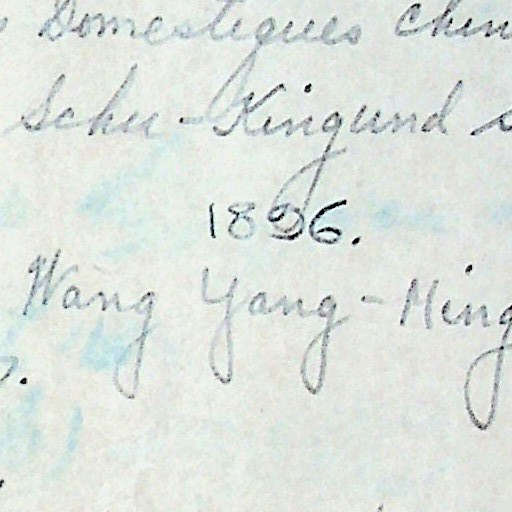 Domestiques chin
Schu-King und s
1896.
Wang Yang-Ming